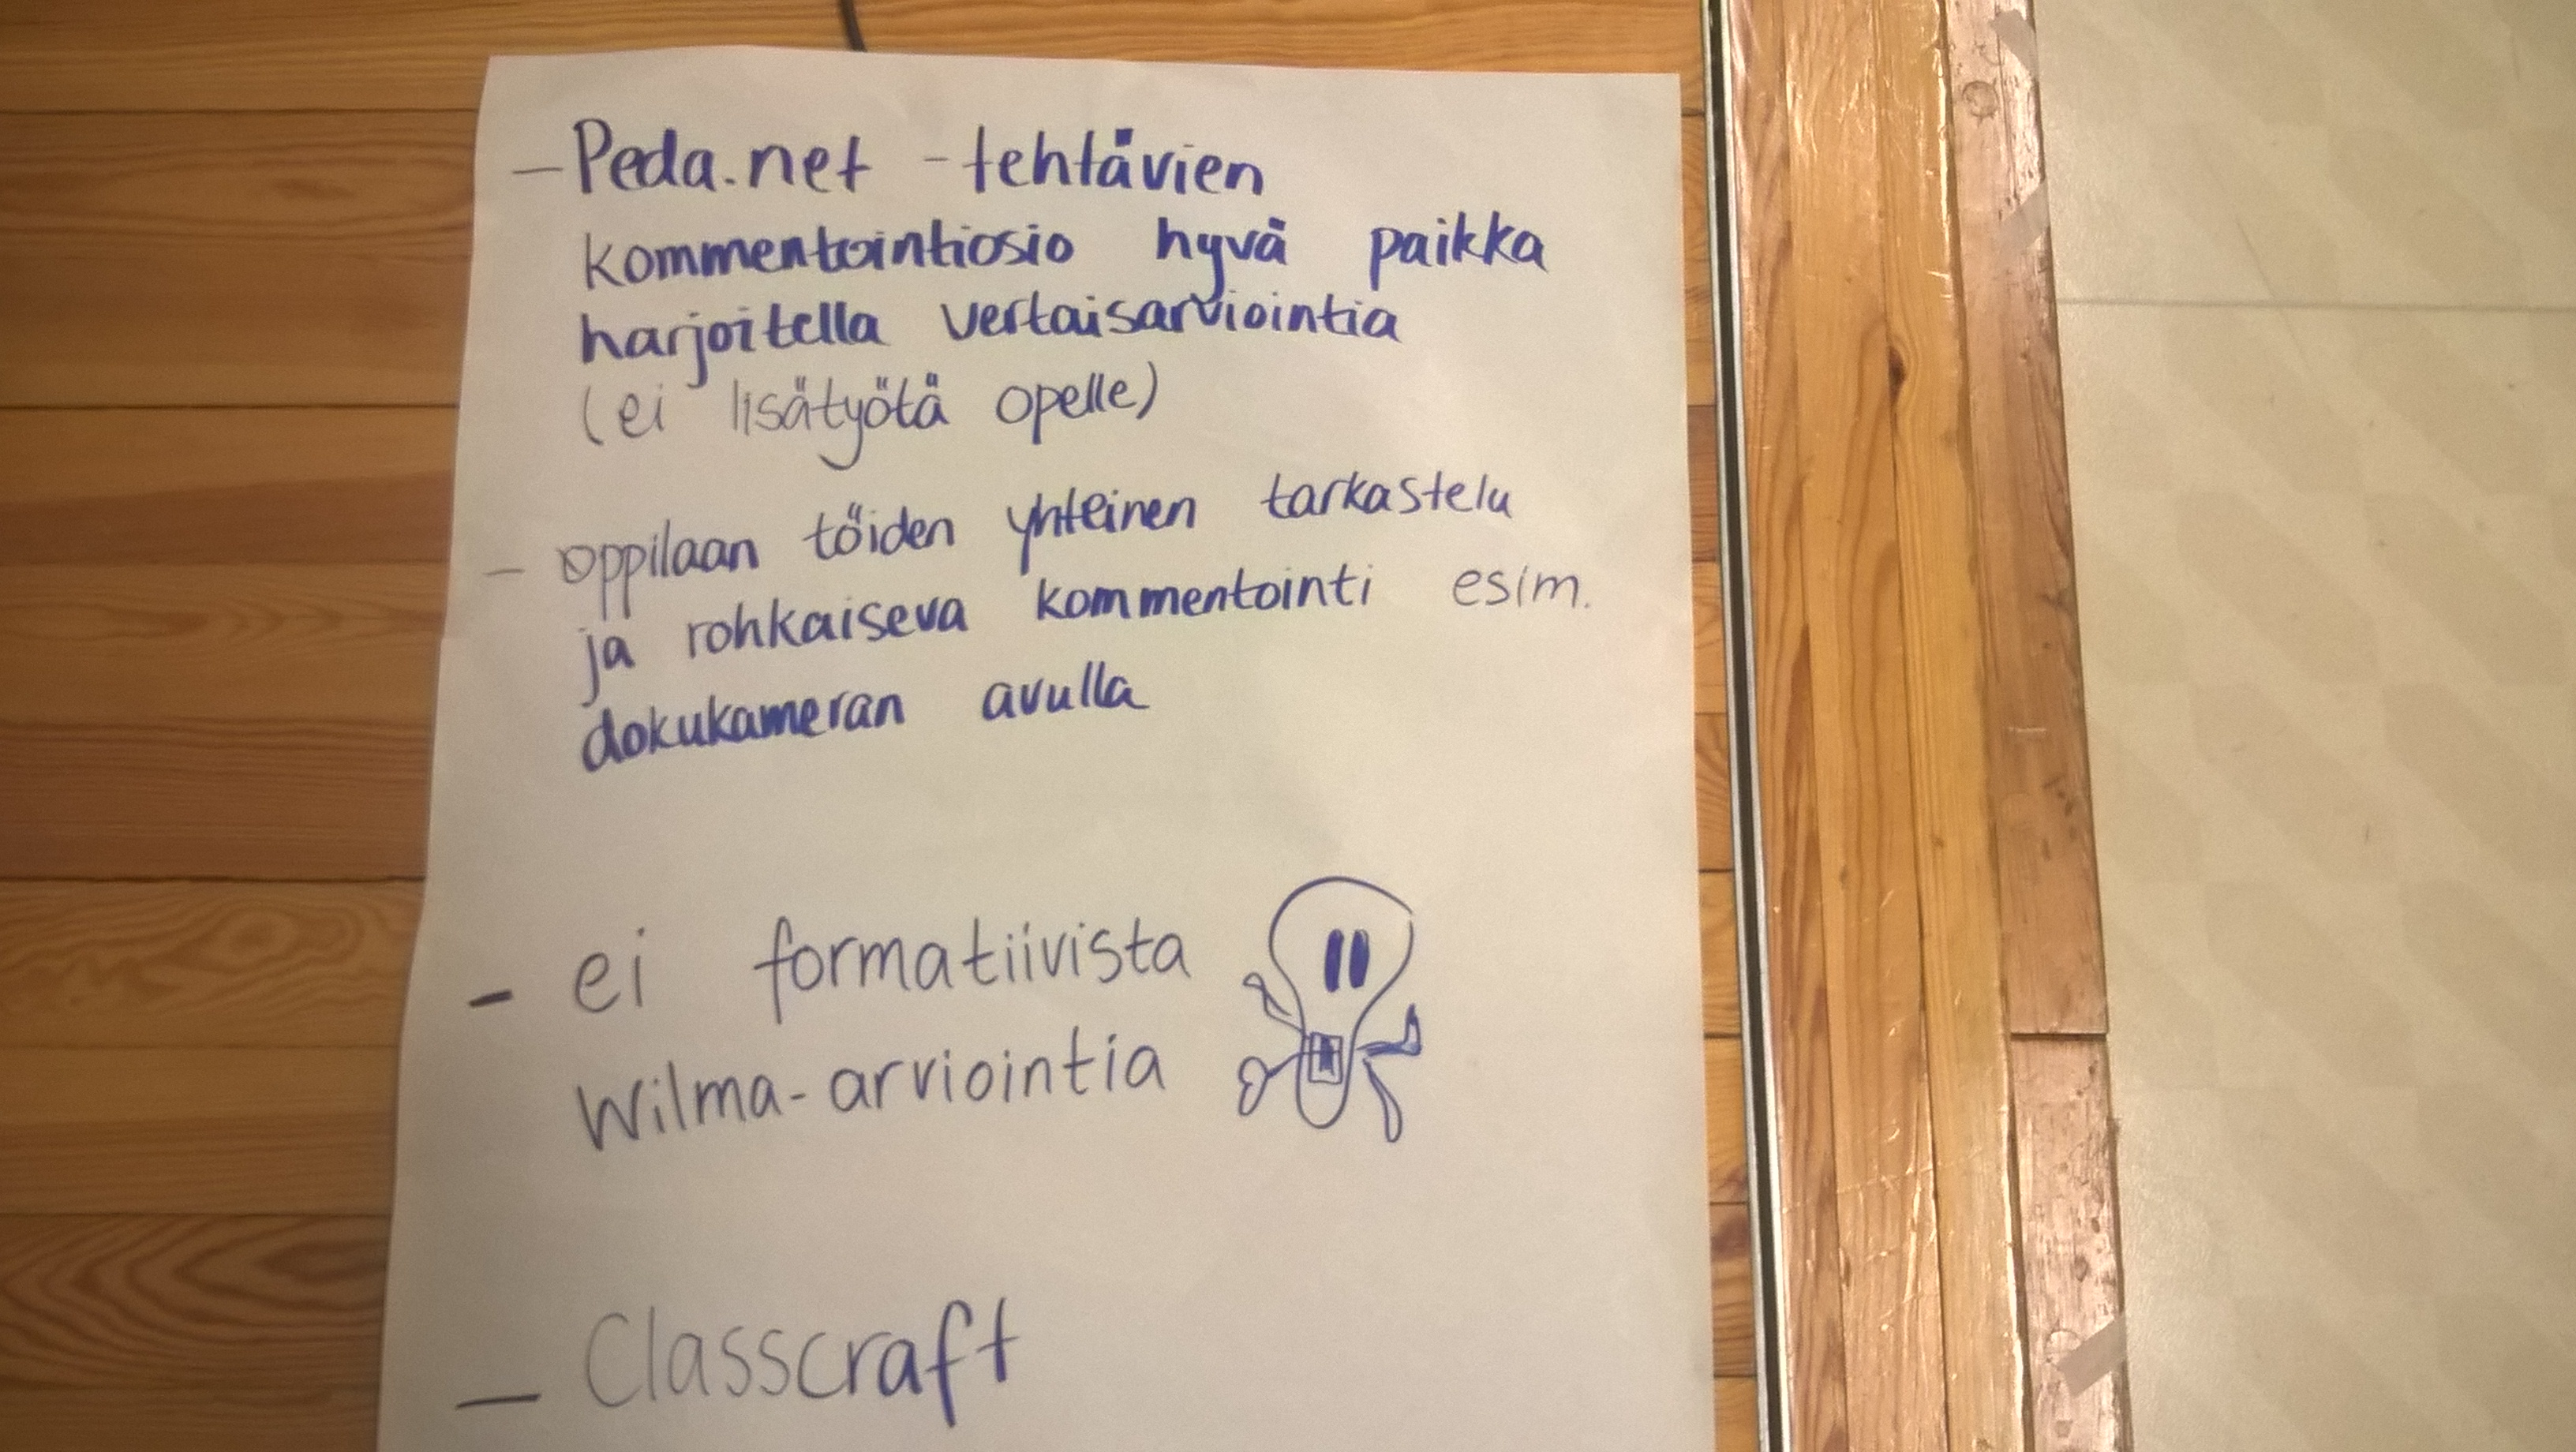 - Peda.net -tehtävien
kommentointiosio hyvä paikka
harjoitella vertaisarviointia
(ei lisätyötä opelle)
- oppilaan töiden yhteinen tarkastelu
ja rohkaiseva kommentointi esim.
dokukameran avulla
- ei formatiivista
Wilma-arviointia
- Classcraft